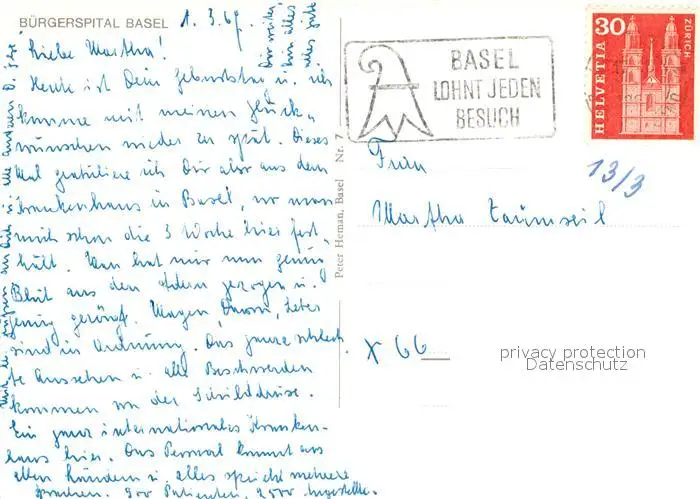 BÜRGERSPITAL BASEL
1. 3. 67.
Liebe Martha!
Heute ist Dein Geburtstag u. ich
komme mit meinen Glück-
wünschen wieder zu spät. Dieses
Mal gratuliere ich Dir aber aus dem
Krankenhaus in Basel, wo man
mich schon die 3 Woche hier fest-
hält. Man hat mir nun genug
Blut aus den Adern gezogen u.
genug geröngt. Magen, Darm, Leber
sind in Ordnung. Das ganze schlech-
te Aussehen u. alle Beschwerden
kommen von der Schilddrüse.
Ein ganz internationales Kranken-
haus hier. Das Personal kommt aus
allen Ländern u. alles spricht mehrere
Sprachen. 900 Patienten, 2500 Angestellte.
Dir weiter
alles gute
Peter Heman, Basel Nr. 7
BASEL
LOHNT JEDEN
BESUCH
30
HELVETIA
ZÜRICH
Frau
Martha Taumseil
13/3
x 66
privacy protection
Datenschutz